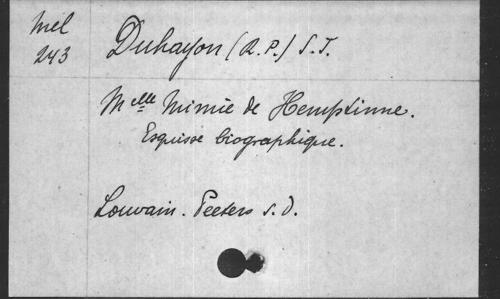 Mel
243
Duhayon (R.P.) S.J.
Melle Mimie de Hemptinne.
Esquisse biographique.
Louvain. Peeters s.d.